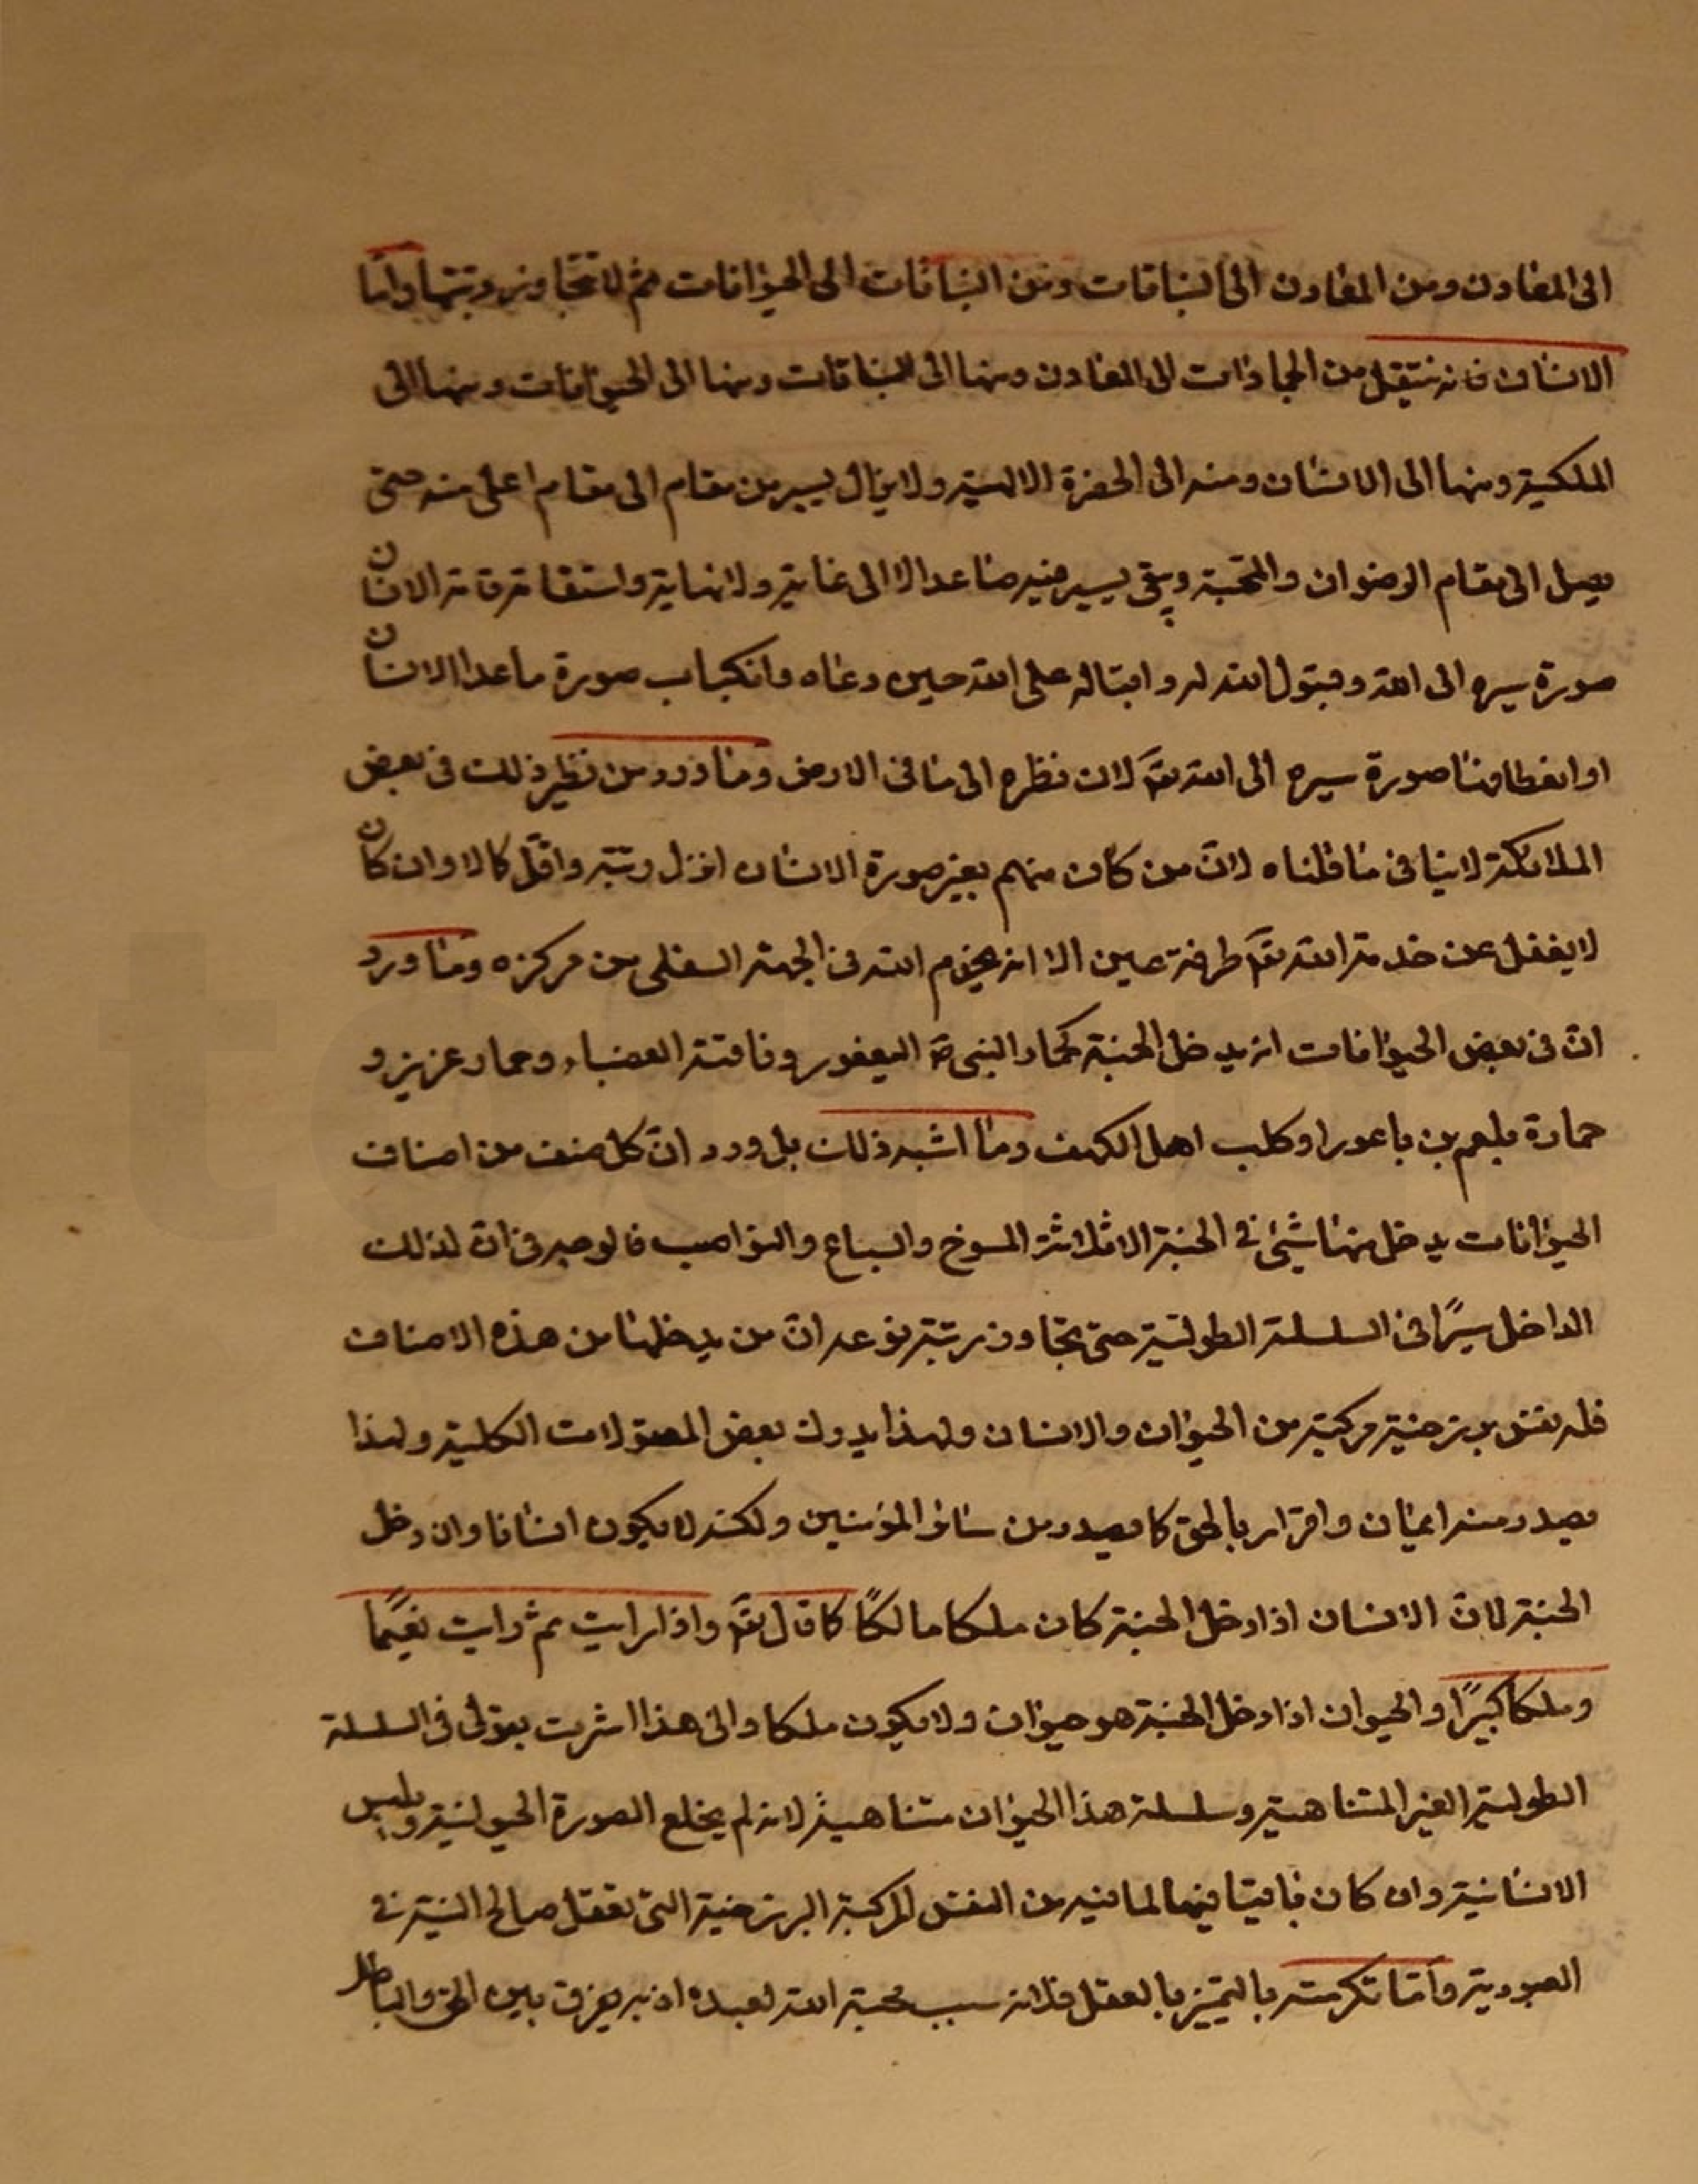 الى المعادن ومن المعادن الى النباتات ومن النباتات الى الحيوانات ثم لا تتجاوز رتبتها واما
الانسان فانه ينتقل من الجمادات الى المعادن ومنها الى النباتات ومنها الى الحيوانات ومنها الى
الملكية ومنها الى الانسان ومنه الى الحضرة الالهية ولا يزال يسير من مقام الى مقام اعلى منه حتى
يصل الى مقام الرضوان والمحبة ويبقى يسير فيه صاعدا لا الى غاية ولا نهاية واستقامة قامة الانسان
صورة سيره الى الله وقبول الله له واقباله على الله حين دعاه وانكباب صورة ما عدا الانسان
او انغطاؤها صورة سيره الى الله تعالى لان نظره الى ما فى الارض وما ورد من نظير ذلك فى بعض
الملائكة لا ينافى ما قلناه لانّ من كان منهم بغير صورة الانسان انزل رتبة واقلّ كمالا وان كان
لا يغفل عن خدمة الله تعٓ طرفة عين الا انه يخدم الله فى الجهة السفلى من مركزه وما ورد
انّ فى بعض الحيوانات انه يدخل الجنة كحمار النبى صٓ اليعفور وناقته العضباء وحمار عزيز و
حمارة بلعم بن باعورا وكلب اهل الكهف وما اشبه ذلك بل ورد انّ كل صنف من اصناف
الحيوانات يدخل منها شئ فى الجنة الا ثلاثة المسوخ والسباع والنواصب فالوجه فى انّ لذلك
الداخل سيرًا فى السلسلة الطولية حتى تجاوز رتبة نوعه انّ من يدخلها من هذه الاصناف
فله نفس برزخية مركبة من الحيوان والانسان ولهذا يدرك بعض المعقولات الكلية ولهذا
يصدر منه ايمان واقرار بالحق كما يصدر من سائر المؤمنين ولكنه لا يكون انسانا وان دخل
الجنة لانّ الانسان اذا دخل الجنة كان ملكا مالكًا كما قال تعٓ واذا رايت ثم رايت نعيمًا
وملكا كبيرًا والحيوان اذا دخل الجنة هو حيوان ولا يكون ملكا والى هذا اشرت بقولى فى السلسلة
الطولية الغير المتناهية وسلسلة هذا الحيوان متناهية لانه لم يخلع الصورة الحيوانية ويلبس
الانسانية وان كان باقيا فيها لما فيه من النفس المركبة البرزخية التى تعقل صالح النية فى
العبودية وامّا تكرمته بالتمييز بالعقل فلانه سبب محبة الله لعبده اذ به يفرق بين الحق والباطل